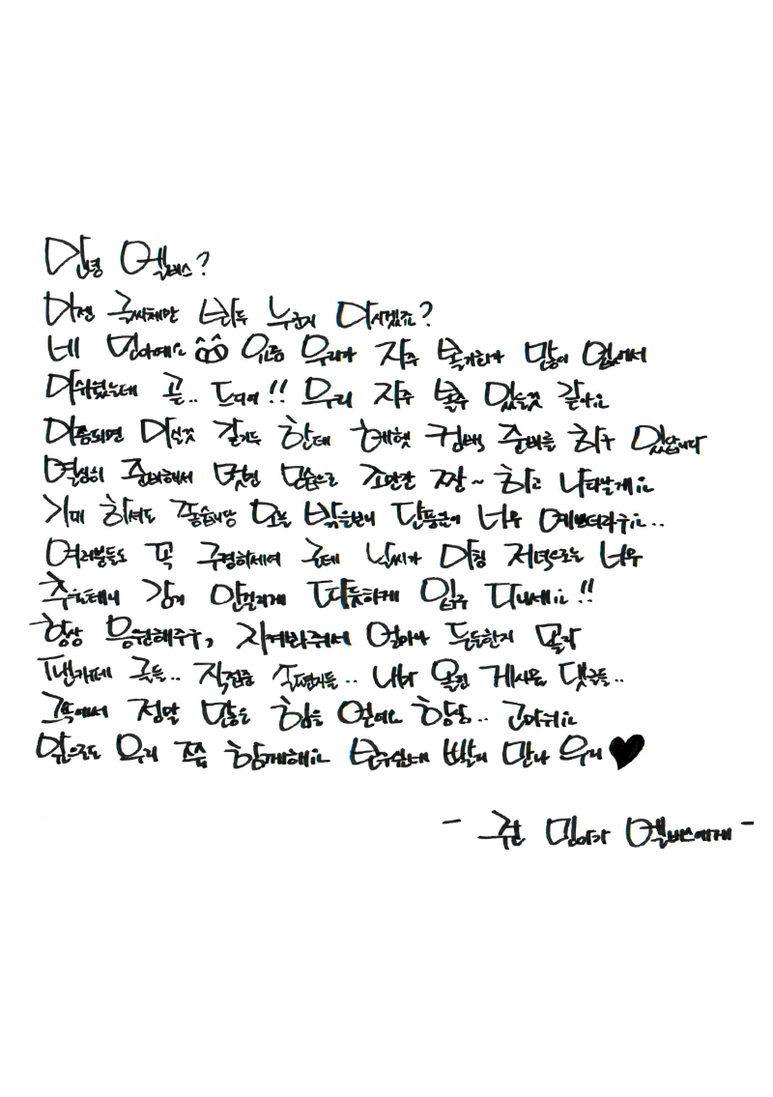 안녕 엘비스?
이젠 글씨체만 봐두 누군지 아시겠죠?
네 민아에요 ㅎㅎ 요즘 우리가 자주 볼기회가 많이 없어서
아쉬웠는데 곧.. 드디어!! 우리 자주 볼수 있을것 같아요
이쯤되면 아실것 같기두 한데 현재 컴백 준비를 하구 있답니다
열심히 준비해서 멋진 모습으로 조만간 짠~ 하고 나타날게요
기대 하셔도 좋습니당 오늘 밖을보니 단풍국이 너무 예쁘더라구요..
여러분들도 꼭 구경하세여 근데 날씨가 아침 저녁으로는 너무
추울테니 감기 안걸리게 따듯하게 입구 다니세요!!
항상 응원해주구, 지켜봐줘서 얼마나 든든한지 몰라
팬카페 글들.. 직접준 손편지들.. 내가 올린 게시물 댓글들..
그속에서 정말 많은 힘을 얻에요 항상.. 고마워요
앞으로도 우리 쭉 함께해요 보구싶은데 빨리 만나 우리♥
- 쥔 민아가 엘비스에게 -